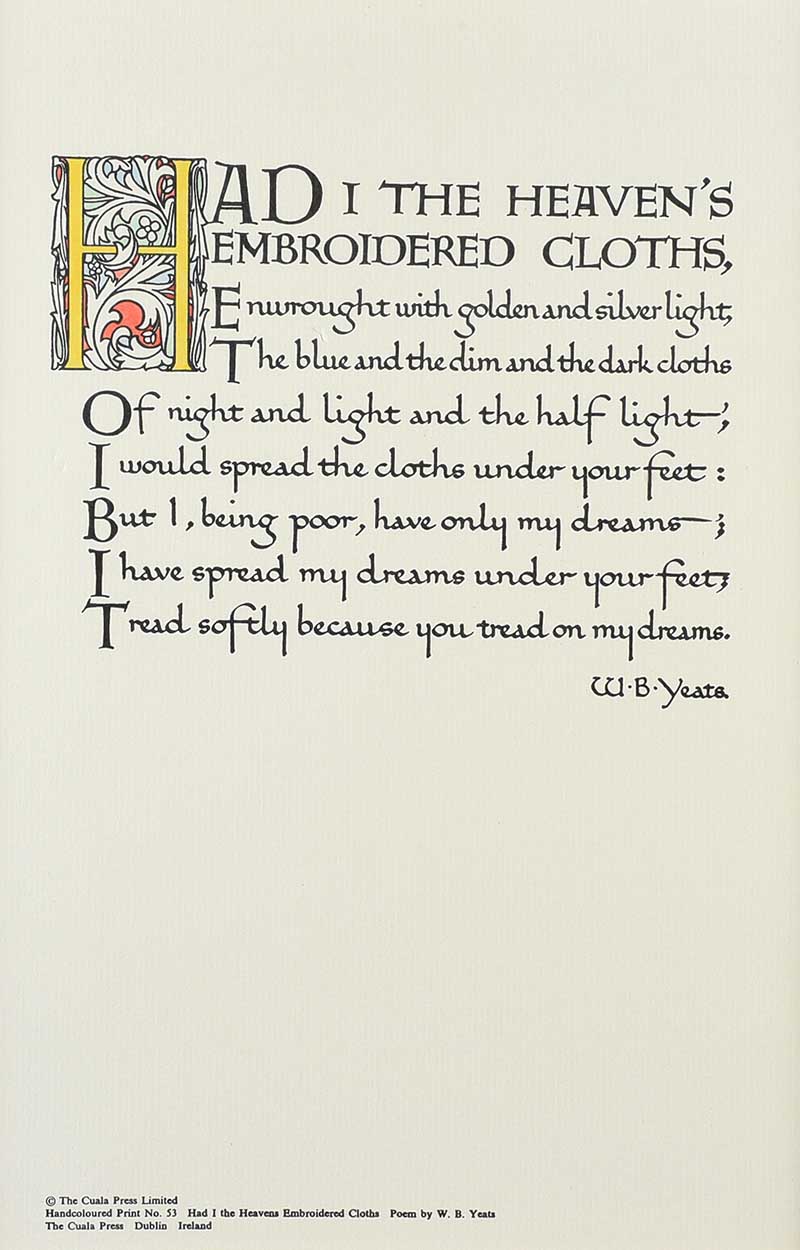 HAD I THE HEAVEN'S
EMBROIDERED CLOTHS,
Enwrought with golden and silver light,
The blue and the dim and the dark cloths
Of night and light and the half light—,
I would spread the cloths under your feet :
But I, being poor, have only my dreams—;
I have spread my dreams under your feet;
Tread softly because you tread on my dreams.
W·B·Yeats.
© The Cuala Press Limited
Handcoloured Print No. 53 Had I the Heavens Embroidered Cloths Poem by W. B. Yeats
The Cuala Press Dublin Ireland